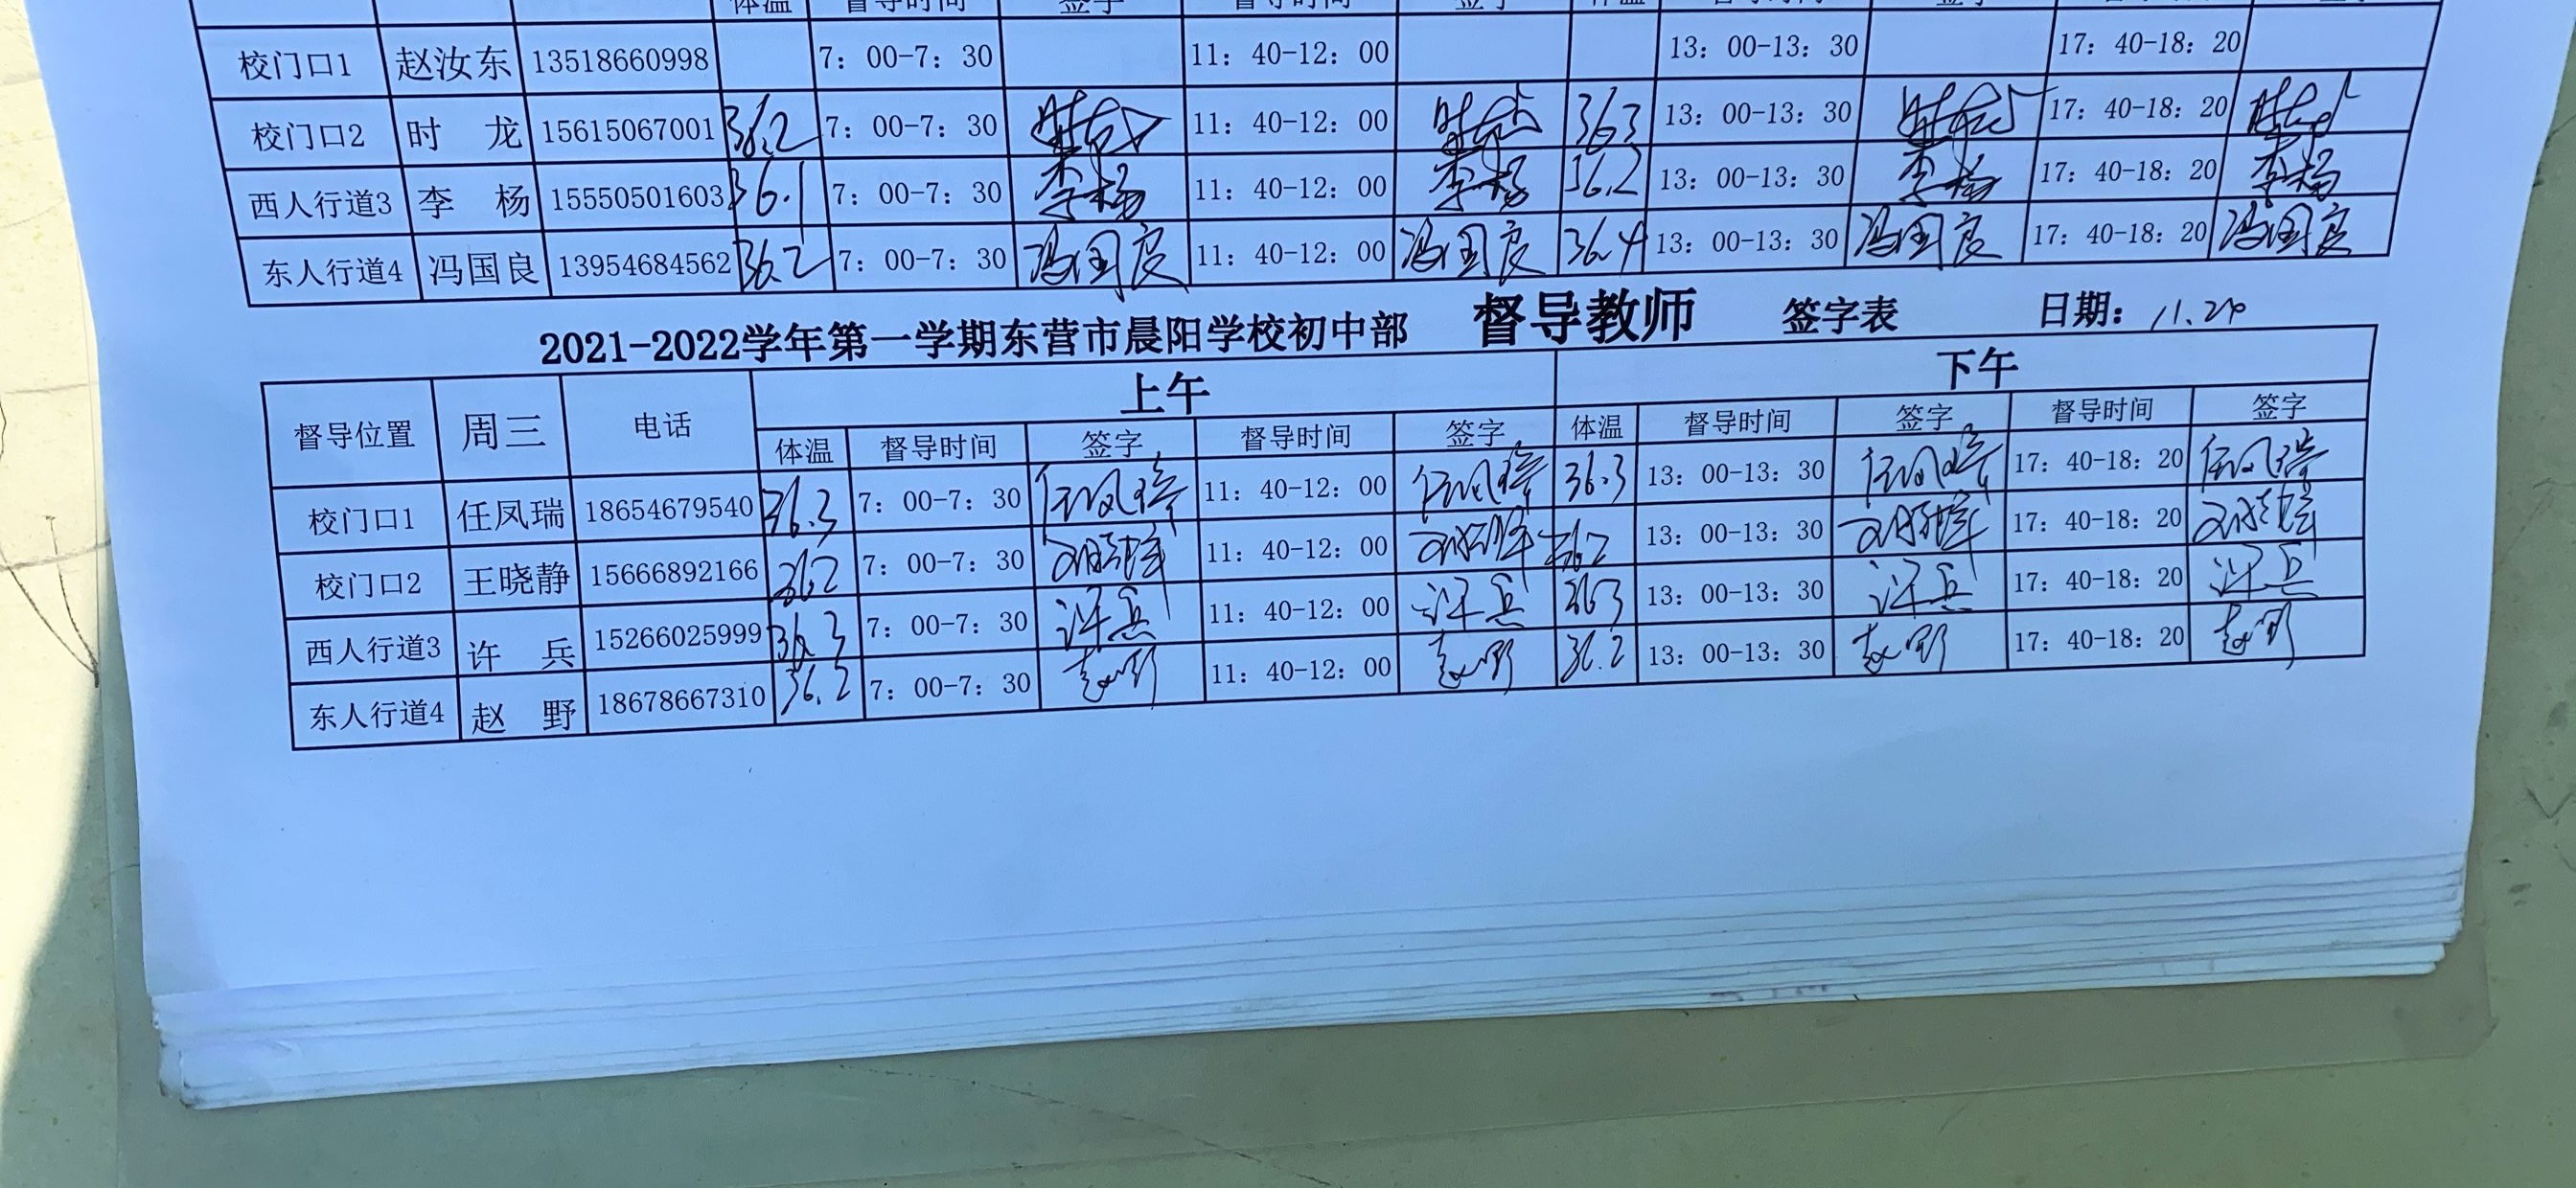 体温 督导时间 签字 督导时间 签字 体温 督导时间 签字 督导时间 签字
校门口1 赵汝东 13518660998 7：00-7：30 11：40-12：00 13：00-13：30 17：40-18：20
校门口2 时 龙 15615067001 36.2 7：00-7：30 时龙 11：40-12：00 时龙 36.3 13：00-13：30 时龙 17：40-18：20 时龙
西人行道3 李 杨 15550501603 36.1 7：00-7：30 李杨 11：40-12：00 李杨 36.2 13：00-13：30 李杨 17：40-18：20 李杨
东人行道4 冯国良 13954684562 36.2 7：00-7：30 冯国良 11：40-12：00 冯国良 36.4 13：00-13：30 冯国良 17：40-18：20 冯国良
2021-2022学年第一学期东营市晨阳学校初中部 督导教师 签字表 日期：11.24
督导位置 周三 电话 上午 下午
体温 督导时间 签字 督导时间 签字 体温 督导时间 签字 督导时间 签字
校门口1 任凤瑞 18654679540 36.3 7：00-7：30 任凤瑞 11：40-12：00 任凤瑞 36.3 13：00-13：30 任凤瑞 17：40-18：20 任凤瑞
校门口2 王晓静 15666892166 36.2 7：00-7：30 11：40-12：00 36.2 13：00-13：30 17：40-18：20
西人行道3 许 兵 15266025999 36.3 7：00-7：30 许兵 11：40-12：00 许兵 36.3 13：00-13：30 许兵 17：40-18：20 许兵
东人行道4 赵 野 18678667310 36.2 7：00-7：30 赵野 11：40-12：00 赵野 36.2 13：00-13：30 赵野 17：40-18：20 赵野